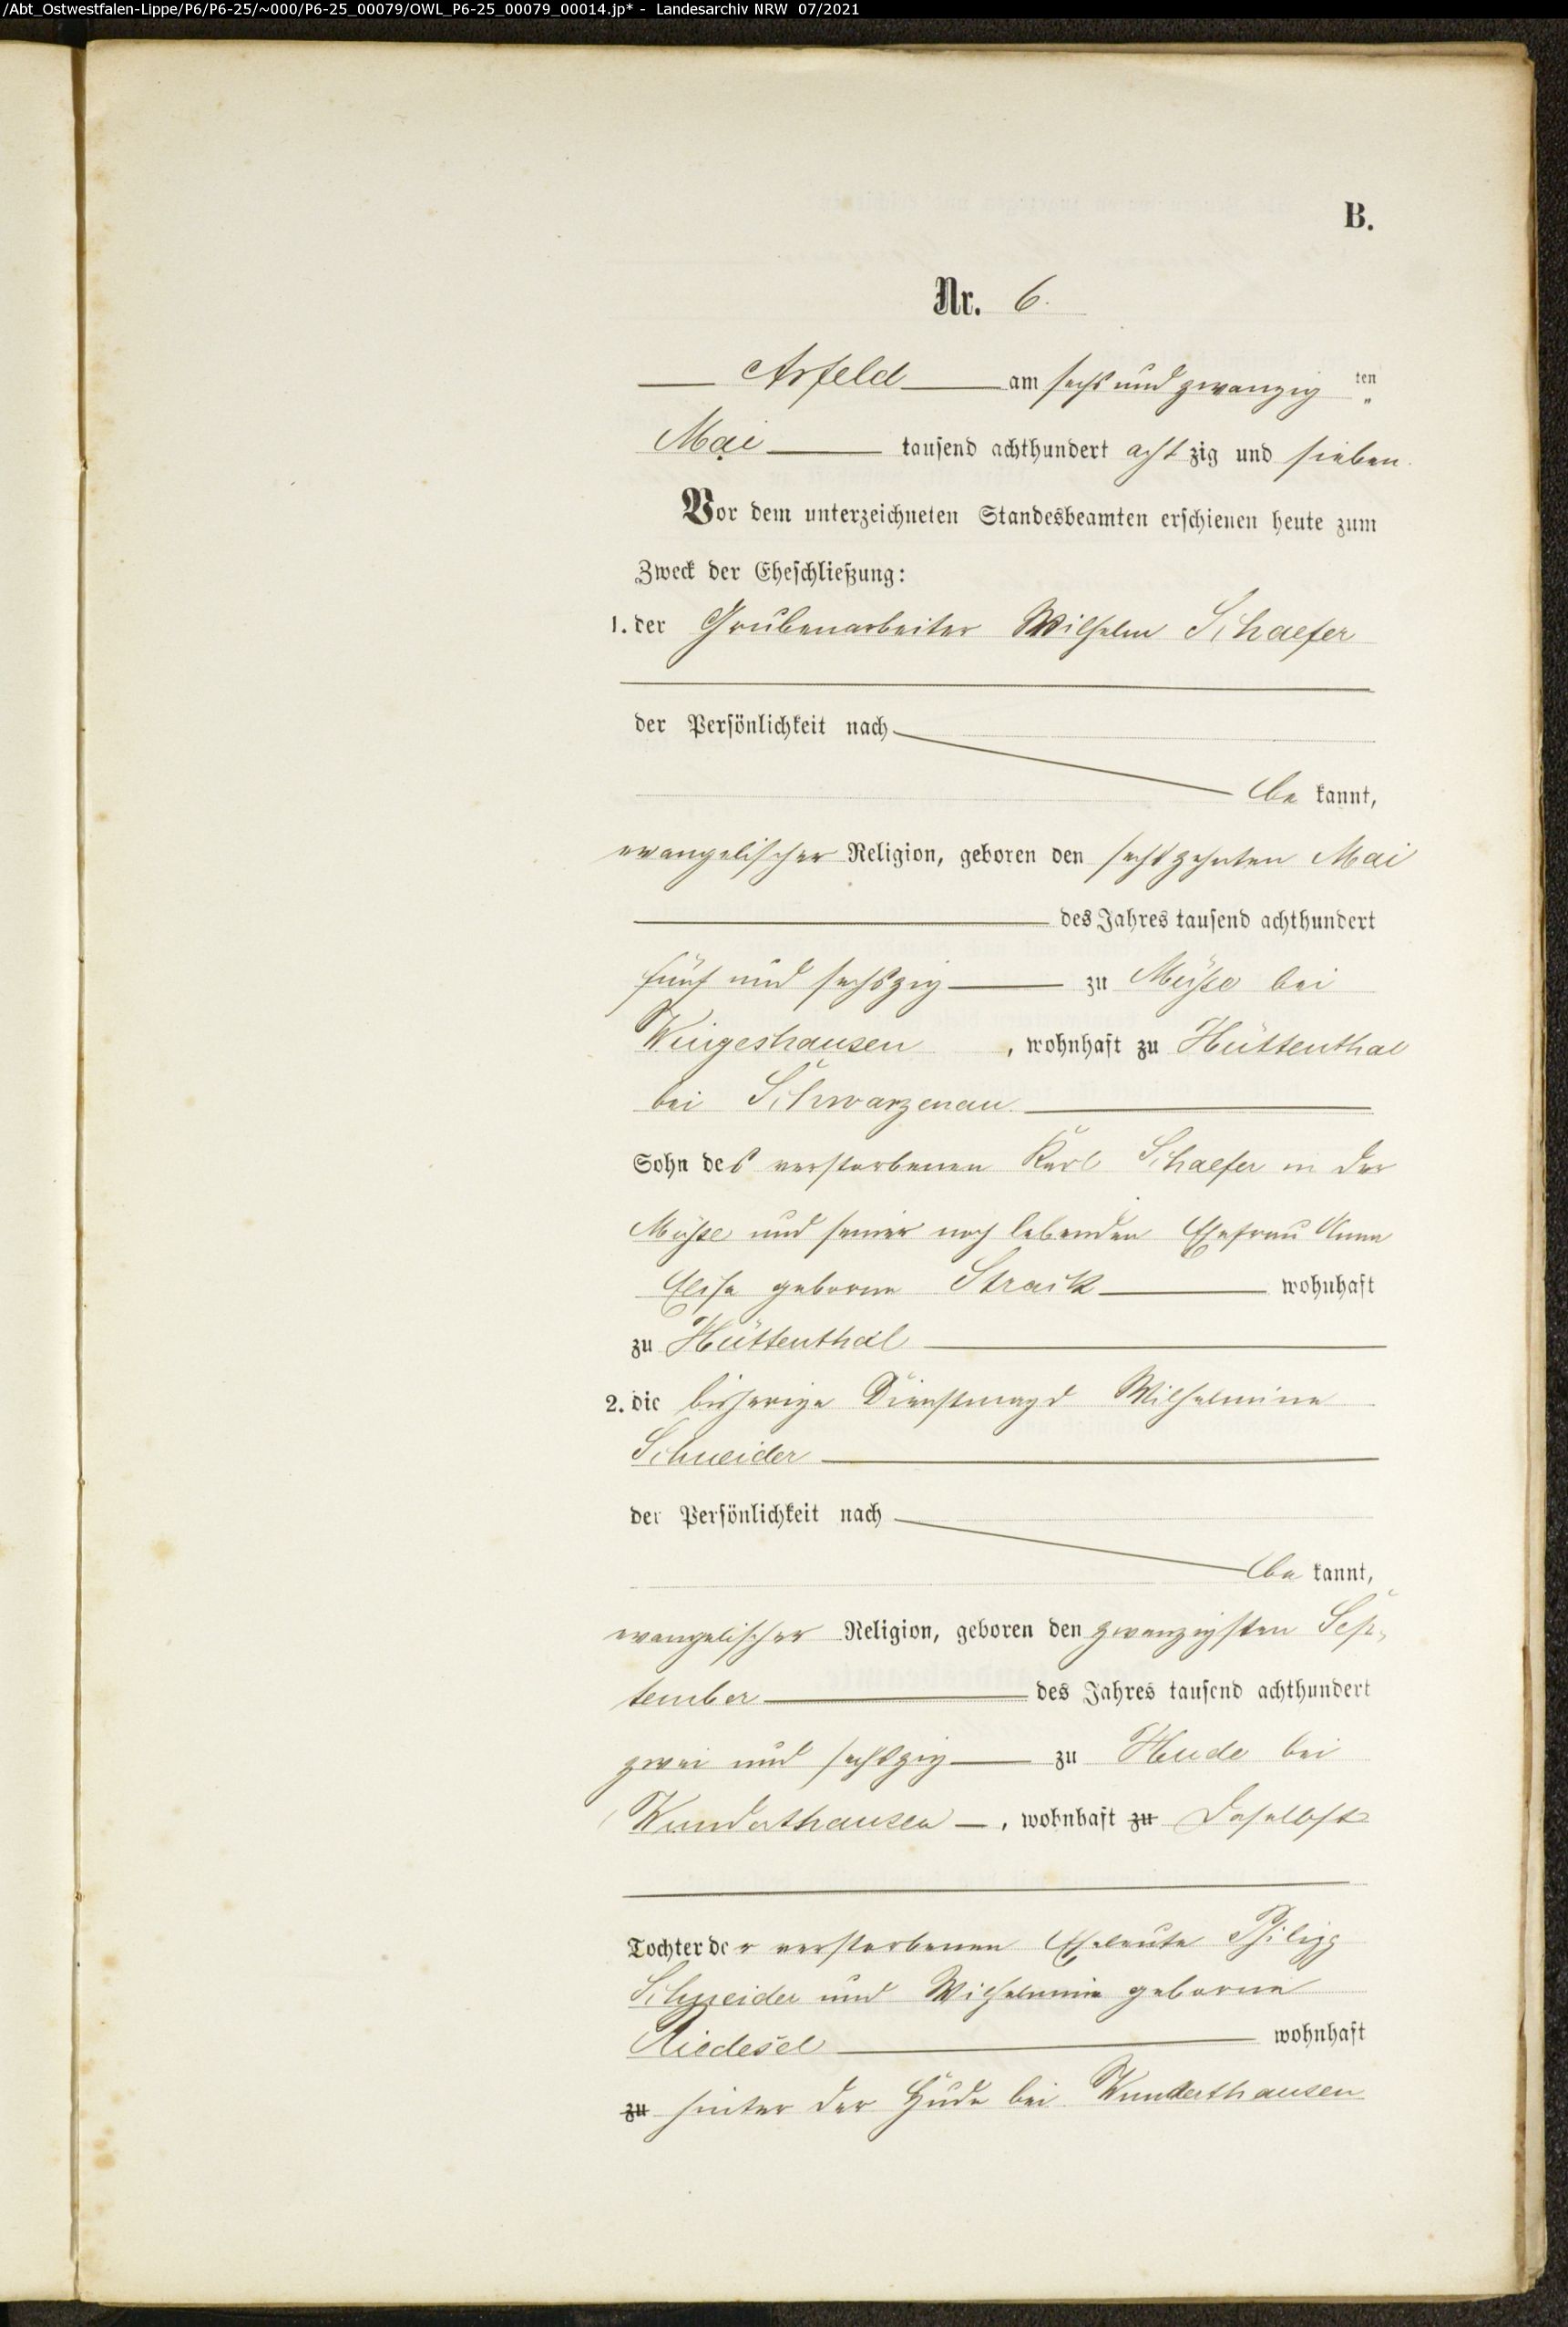 /Abt_Ostwestfalen-Lippe/P6/P6-25/~000/P6-25_00079/OWL_P6-25_00079_00014.jp* - Landesarchiv NRW 07/2021
B.
Nr. 6.
Arfeld am sechs und zwanzig ten
Mai tausend achthundert acht zig und sieben.
Vor dem unterzeichneten Standesbeamten erschienen heute zum
Zweck der Eheschließung:
1. der Grubenarbeiter Wilhelm Schaefer
der Persönlichkeit nach
be kannt,
evangelischer Religion, geboren den sechszehnten Mai
des Jahres tausend achthundert
fünf und sechszig zu Müsse bei
Wingeshausen, wohnhaft zu Hüttenthal
bei Schwarzenau.
Sohn des verstorbenen Karl Schaefer in der
Müsse und seiner noch lebenden Ehefrau Anna
Elise geborne Strack wohnhaft
zu Hüttenthal
2. die bisherige Dienstmagd Wilhelmine
Schneider
der Persönlichkeit nach
be kannt,
evangelischer Religion, geboren den zwanzigsten Sep-
tember des Jahres tausend achthundert
zwei und sechszig zu Hude bei
Wunderthausen, wohnhaft zu daselbst
Tochter der verstorbenen Eheleute Philipp
Schneider und Wilhelmine geborne
Riedesel wohnhaft
zu hinter der Hude bei Wunderthausen